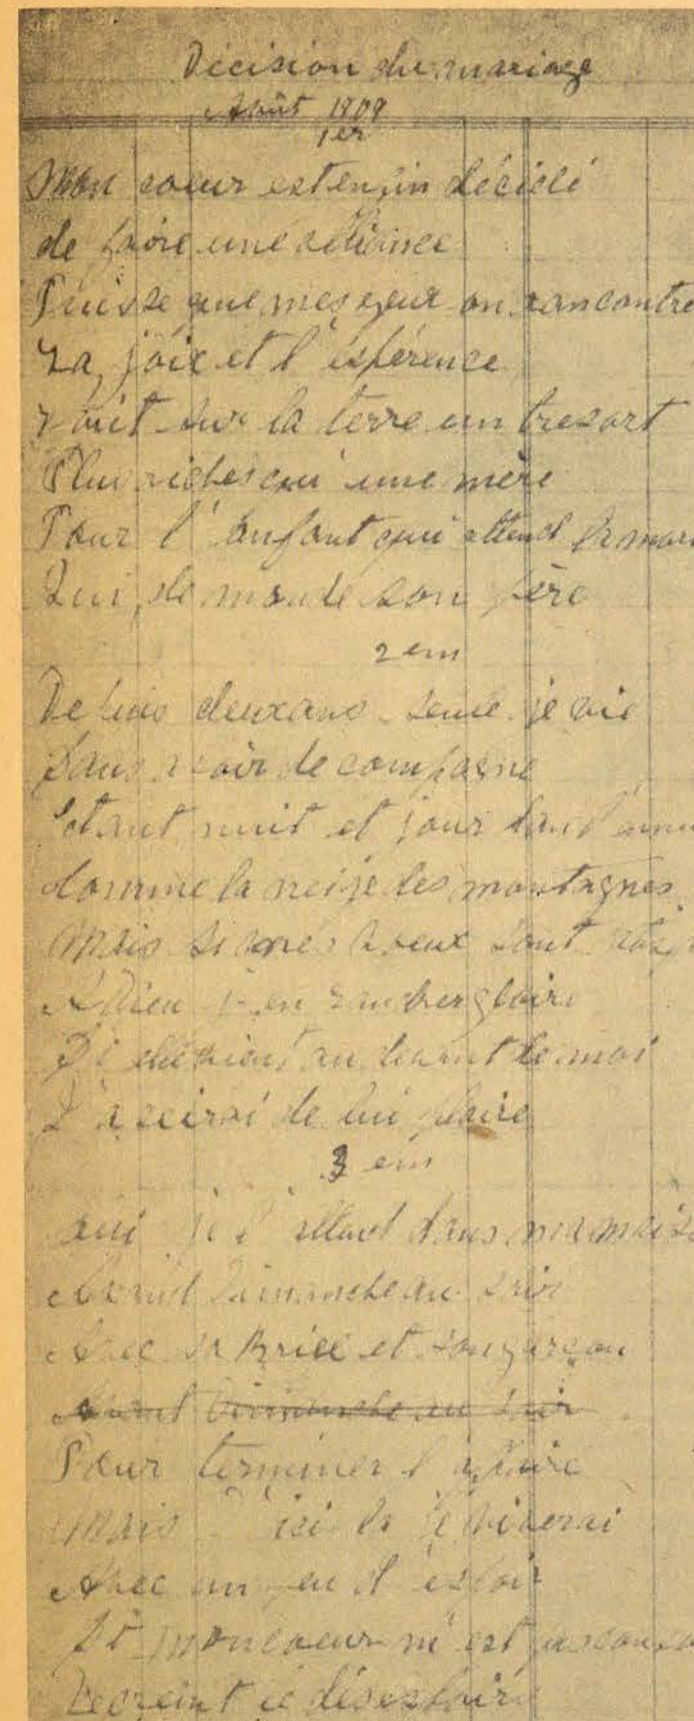 Décision du mariage
Août 1909
1er
Mon coeur est enfin décidé
de faire une alliance
Puisse que mes yeux on rancontre
La joie et l'éspérence
sur la terre un tresort
Plus riches qu'une mère
Pour l'enfant qui attend
Qui demande son père
2 em
Depuis deux ans seule je vie
Sans avoir de compagne
Etant nuit et jour
Comme la neige des montagnes
Mais si mes voeux sont
A Dieu j'en gloire
Si elle vient au devant de moi
de lui plaire
3 em
oui je l'attend dans ma
Avant Dimanche au soir
Avec sa et son garçon
Avant Dimanche au soir
Pour terminer l'affaire
Mais ici la je viverai
Avec un peu d'espoir
Si mon coeur n'est pas